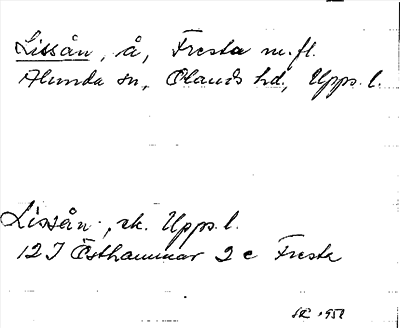 Lissån, å, Fresta m.fl.
Alunda sn, Olands hd, Upps. l.
Lissån, rk. Upps. l.
12 I Östhammar 2 c Fresta
1958